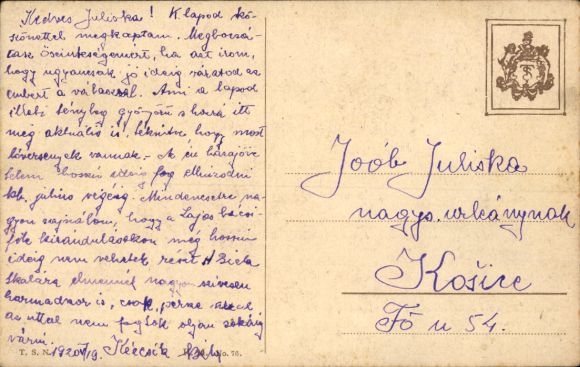 Kedves Juliska! K. lapod kö-
szönettel megkaptam. Megbocsá-
tasz őszinteségemért, ha azt irom,
hogy ugyancsak jó ideig váratod az
embert a válaszzal. Ami a lapod
illeti tényleg gyönyörű s hozzá itt
még aktuális is, tekintve hogy most
lóversenyek vannak. Az én hazajöve
telem hosszú ideig fog elhuzódni
kb. julius végéig. Mindenesetre na-
gyon sajnálom, hogy a Lajos bácsi-
féle kirándulásokon még hosszú
ideig nem vehetek részt. A
skalára elmennék nagyon szivesen
harmadszor is, csak persze azzal
az uttal nem fogtok olyan sokáig
várni.
T. S. N. 1920 19. No. 76.
Joób Juliska
nagys. urleánynak
Košice
Fő u 54.